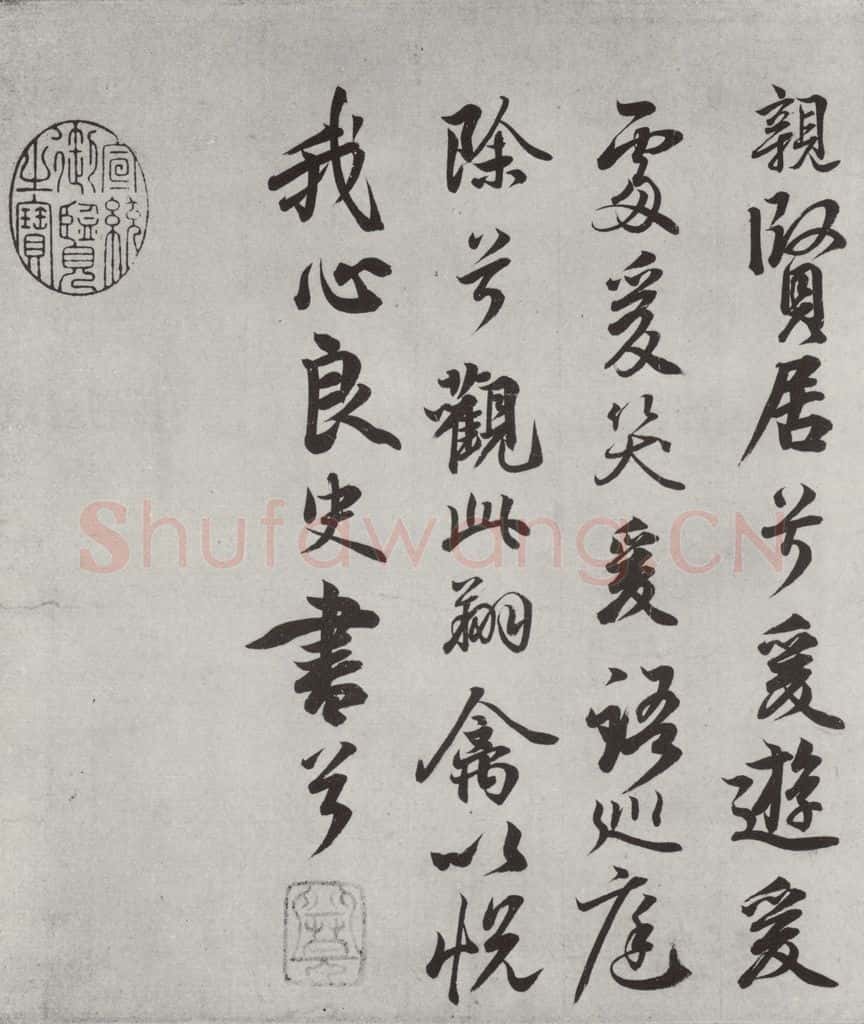 親賢居兮爰遊爰
處爰笑爰語巡庭
除兮觀此翔禽以悦
我心良史書兮
宣統
御覽
之寶
Shufawang.CN